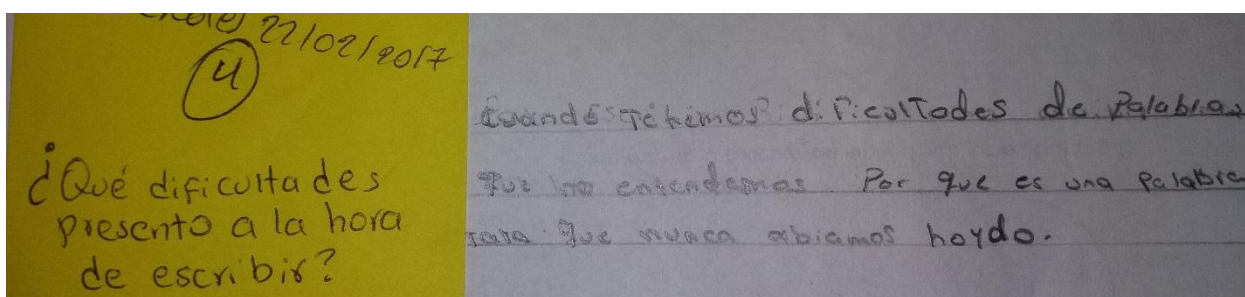 22/02/2017
4
¿Qué dificultades
presento a la hora
de escribir?
Cuando Tenemos dificulTades de Palabras
que no entendemos Por que es una Palabra
rara que nunca abiamos hoydo.